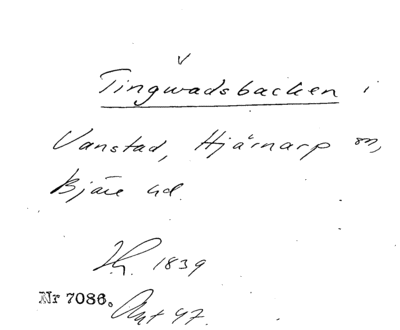 Tingwadsbacken i
Vanstad, Hjärnarp sn,
Bjäre hd.
1839
Nr 7086. Akt 47.